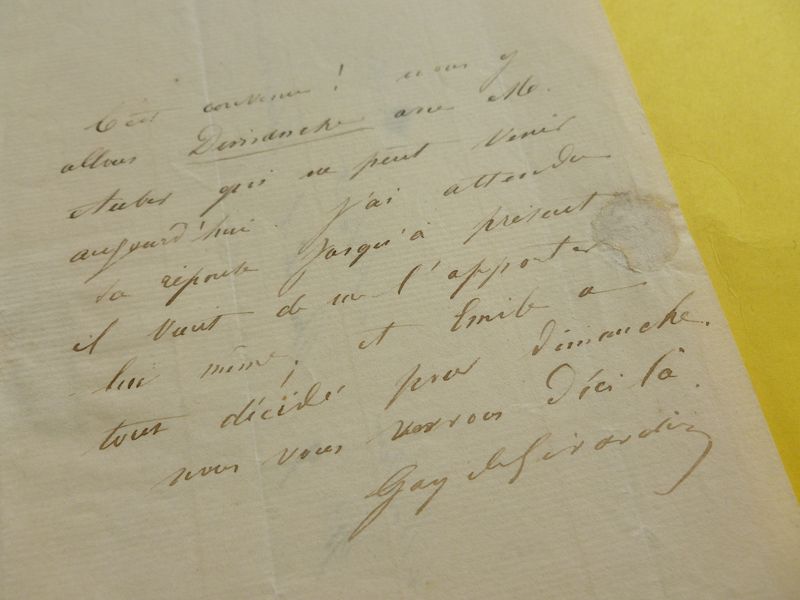 C'est convenu! nous y
allons Dimanche avec Mr.
Auber qui ne peut venir
aujourd'hui. J'ai attendu
sa réponse jusqu'à présent
il vient de me l'apporter
lui même, et Emile a
tout décidé pour dimanche.
nous vous verrons d'ici là.
Gay de Girardin